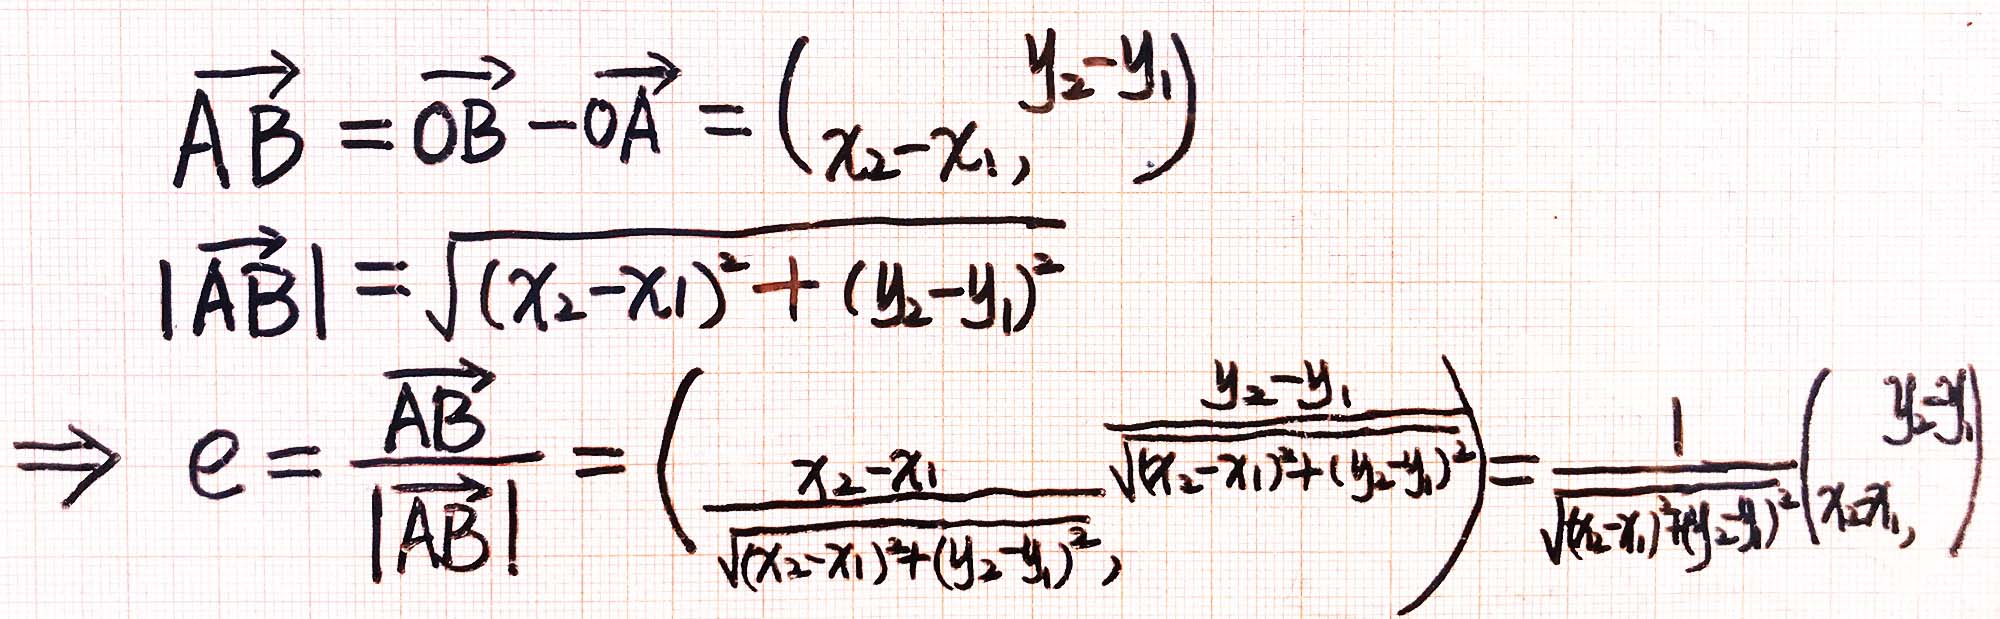 $\overrightarrow{AB} = \overrightarrow{OB} - \overrightarrow{OA} = (x_2 - x_1, y_2 - y_1)$
$|\overrightarrow{AB}| = \sqrt{(x_2 - x_1)^2 + (y_2 - y_1)^2}$
$\Rightarrow e = \frac{\overrightarrow{AB}}{|\overrightarrow{AB}|} = \left(\frac{x_2 - x_1}{\sqrt{(x_2 - x_1)^2 + (y_2 - y_1)^2}}, \frac{y_2 - y_1}{\sqrt{(x_2 - x_1)^2 + (y_2 - y_1)^2}}\right) = \frac{1}{\sqrt{(x_2 - x_1)^2 + (y_2 - y_1)^2}}(x_2 - x_1, y_2 - y_1)$